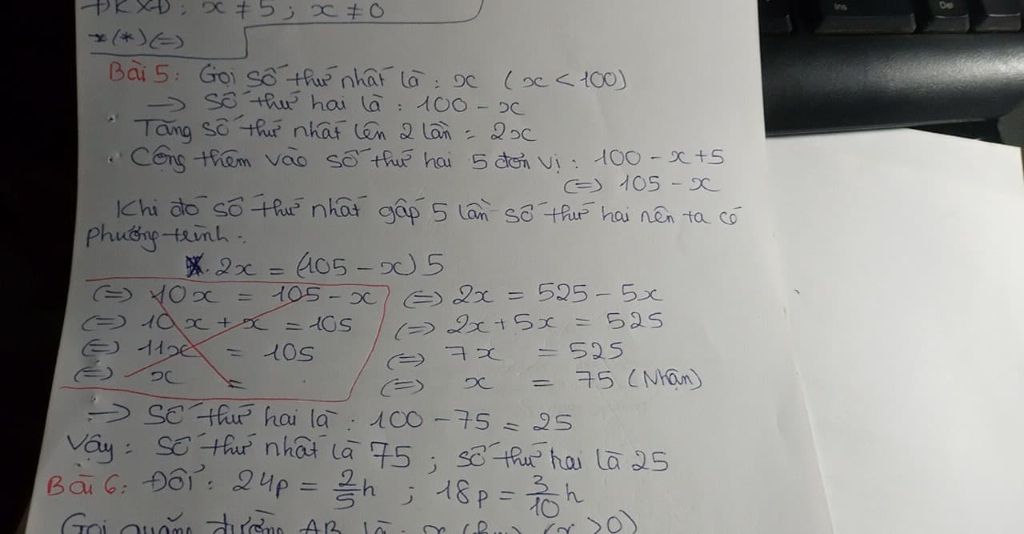 ĐKXĐ: x ≠ 5; x ≠ 0
*(*)(=)
Bài 5: Gọi số thứ nhất là: x (x < 100)
→ Số thứ hai là: 100 - x
Tăng số thứ nhất lên 2 lần = 2x
Cộng thêm vào số thứ hai 5 đơn vị: 100 - x + 5
(=) 105 - x
Khi đó số thứ nhất gấp 5 lần số thứ hai nên ta có
phương trình.
2x = (105 - x) 5
(=) 10x = 105 - x (=) 2x = 525 - 5x
(=) 10x + x = 105 (=) 2x + 5x = 525
(=) 11x = 105 (=) 7x = 525
(=) x = (=) x = 75 (Nhận)
→ Số thứ hai là: 100 - 75 = 25
Vậy: Số thứ nhất là 75; số thứ hai là 25
Bài 6: Đổi: 24p = 2/5 h; 18p = 3/10 h
Gọi quãng đường AB là: x (x > 0)
Ins
De